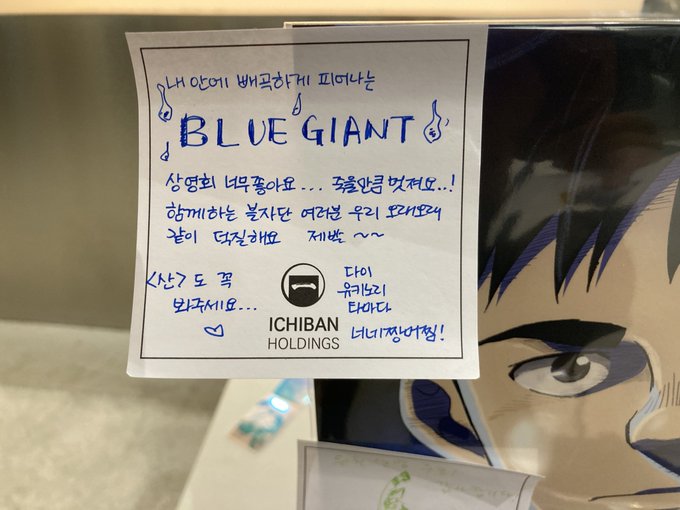 내 안에 빼곡하게 피어나는
BLUE GIANT
상영회 너무좋아요... 죽을만큼 멋져요..!
함께하는 블자단 여러분 우리 오래오래
같이 덕질해요 제발 ~~
<산>도 꼭
봐주세요...
♡
ICHIBAN
HOLDINGS
다이
유키노리
타마다
너네짱머찜!